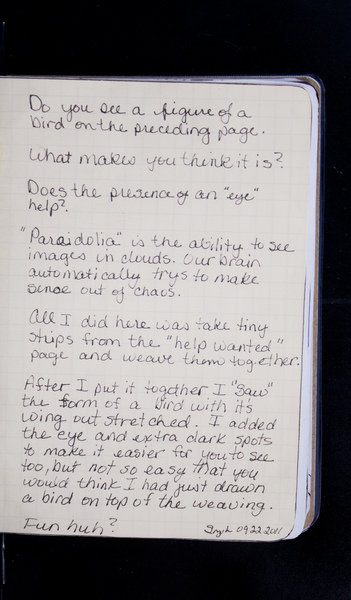 Do you see a figure of a
bird on the preceding page.
What makes you think it is?
Does the presence of an "eye"
help?
"Paraidolia" is the ability to see
images in clouds. Our brain
automatically trys to make
sence out of chaos.
All I did here was take tiny
strips from the "help wanted"
page and weave them together.
After I put it together I "saw"
the form of a bird with it's
wing out stretched. I added
the eye and extra dark spots
to make it easier for you to see
too, but not so easy that you
would think I had just drawn
a bird on top of the weaving.
Fun huh?
09.22.2011